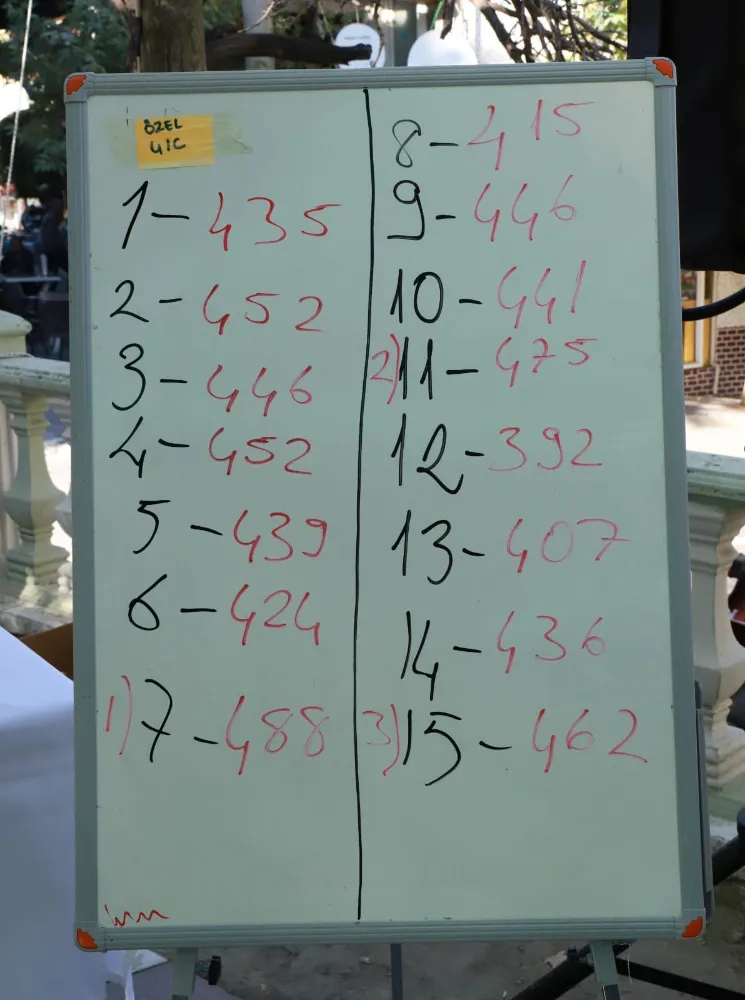 ÖZEL
4/C
1-435
2-452
3-446
4-452
5-439
6-424
1) 7-488
8-415
9-446
10-441
2) 11-475
12-392
13-407
14-436
3) 15-462